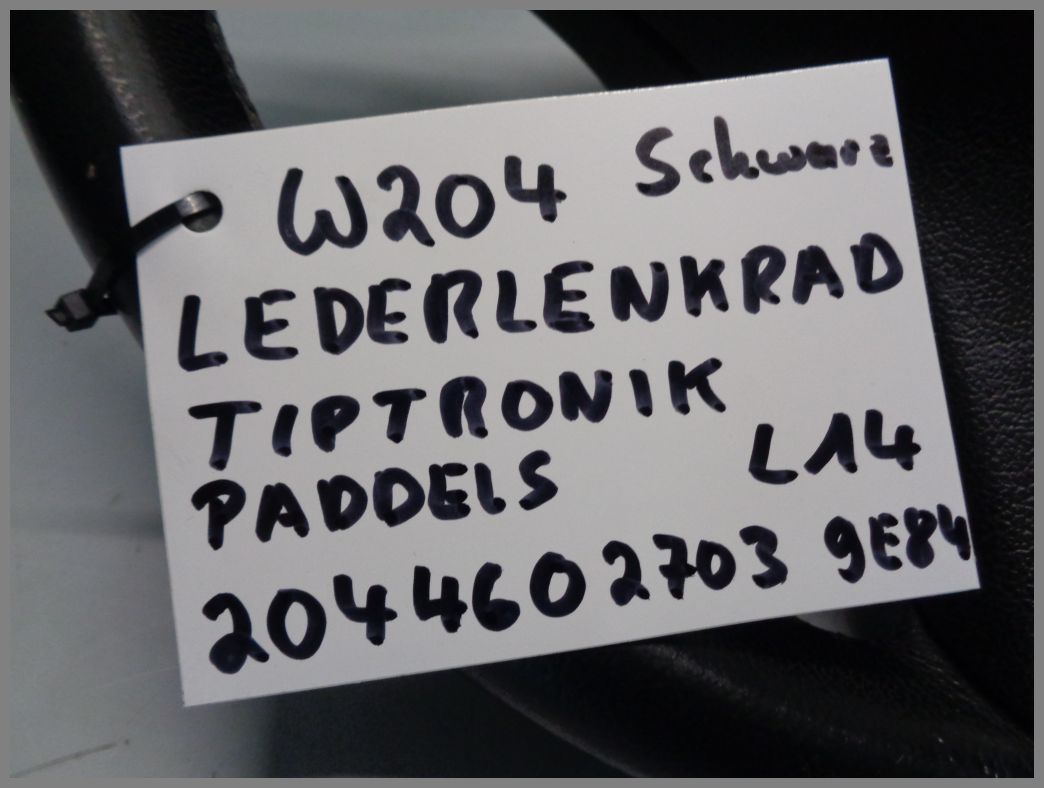 W204 Schwarz
LEDERLENKRAD
TIPTRONIK
PADDELS L14
2044602703 9E84